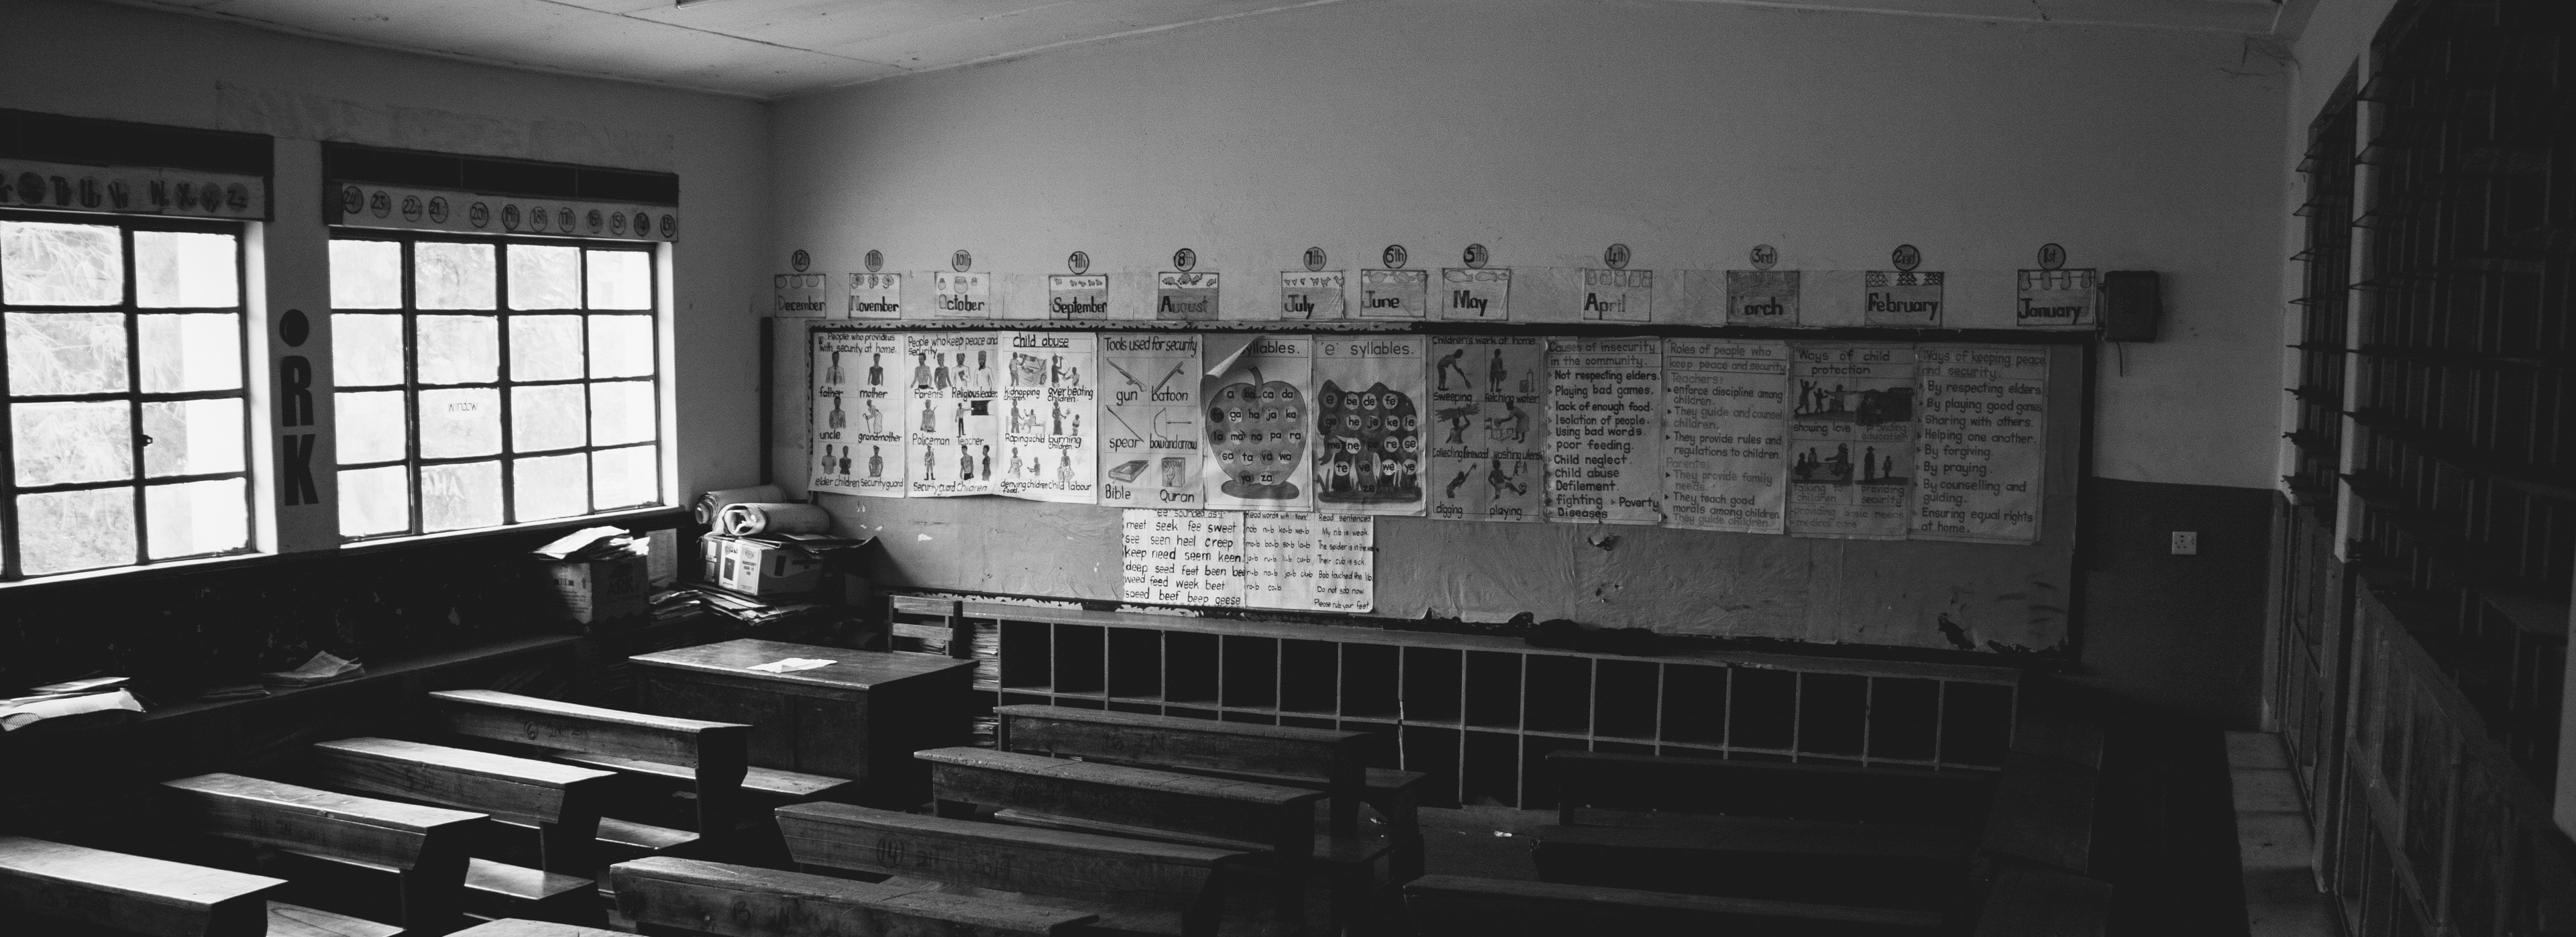 Tt Uu Vv Ww Xx Yy Zz
24th 23rd 22nd 21st 20th 19th 18th 17th 16th 15th 14th 13th
ORK
window
12th 11th 10th 9th 8th 7th 6th 5th 4th 3rd 2nd 1st
December November October September August July June May April March February January
People who provide us
with security at home.
father mother
uncle grandmother
elder children Security guard
People who keep peace and
security
Parents Religious leader
Policeman Teacher
Security guard Children
child abuse
kidnapping children overbeating children
Raping a child burning children
denying children food child labour
Tools used for security
gun batoon
spear bow and arrow
Bible Quran
syllables.
a ba ca da
ga ha ja ka
la ma na pa ra
sa ta va wa
ya za
'e' syllables.
e be de fe
ge he je ke le
me ne re se
te ve we ye
ze
Children's work at home
Sweeping fetching water
Collecting firewood washing utensils
digging playing
Causes of insecurity
in the community.
Not respecting elders.
Playing bad games.
lack of enough food.
Isolation of people.
Using bad words.
poor feeding.
Child neglect.
Child abuse
Defilement.
fighting Poverty
Diseases
Roles of people who
keep peace and security
Teachers:
enforce discipline among
children.
They guide and counsel
children.
They provide rules and
regulations to children.
Parents:
They provide family
needs.
They teach good
morals among children
They guide children.
Ways of child
protection
showing love providing education
talking to children providing security
providing basic needs
medical care
Ways of keeping peace
and security.
By respecting elders
By playing good games
Sharing with others.
Helping one another.
By forgiving.
By praying.
By counselling and
guiding.
Ensuring equal rights
at home.
'ee' sounded as
meet seek fee sweet
see seen heel creep
keep need seem keen
deep seed feet been bee
weed feed week beet
speed beef beep geese
Read words with
Read sentences
My rib is weak.
The spider is in the
Their cub is sick.
Bob touched the
Do not sob now
Please rub your feet